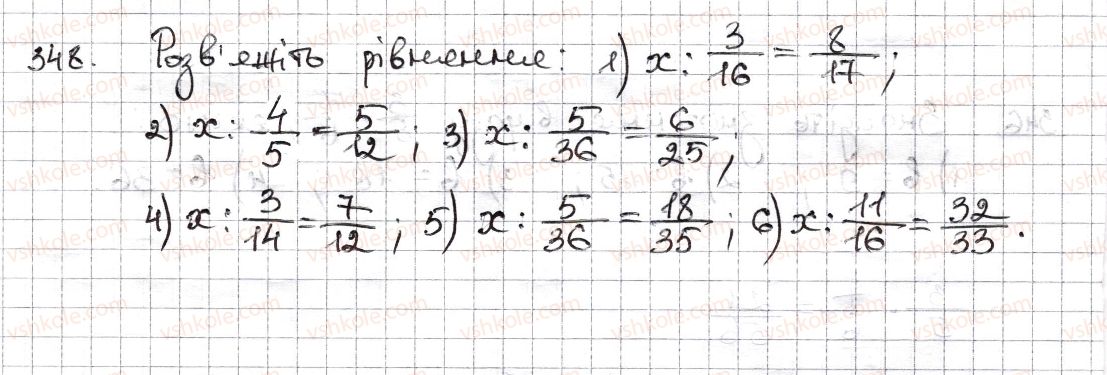 348. Розв'яжіть рівняння: 1) x : 3/16 = 8/17 ;
2) x : 4/5 = 5/12 ; 3) x : 5/36 = 6/25 ;
4) x : 3/14 = 7/12 ; 5) x : 5/36 = 18/35 ; 6) x : 11/16 = 32/33 .